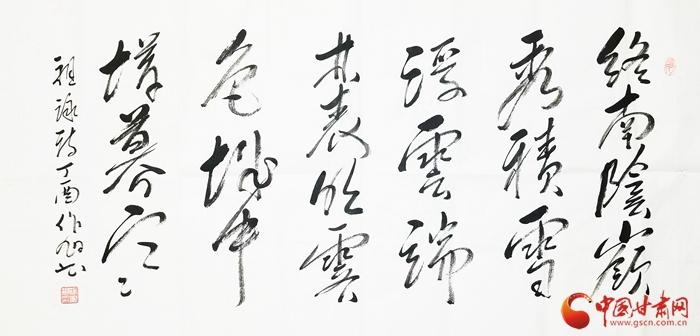 終南陰嶺
秀積雪
浮雲端
林表明霽
色城中
增暮寒
祖詠詩丁酉作旭
中国甘肃网
www.gscn.com.cn